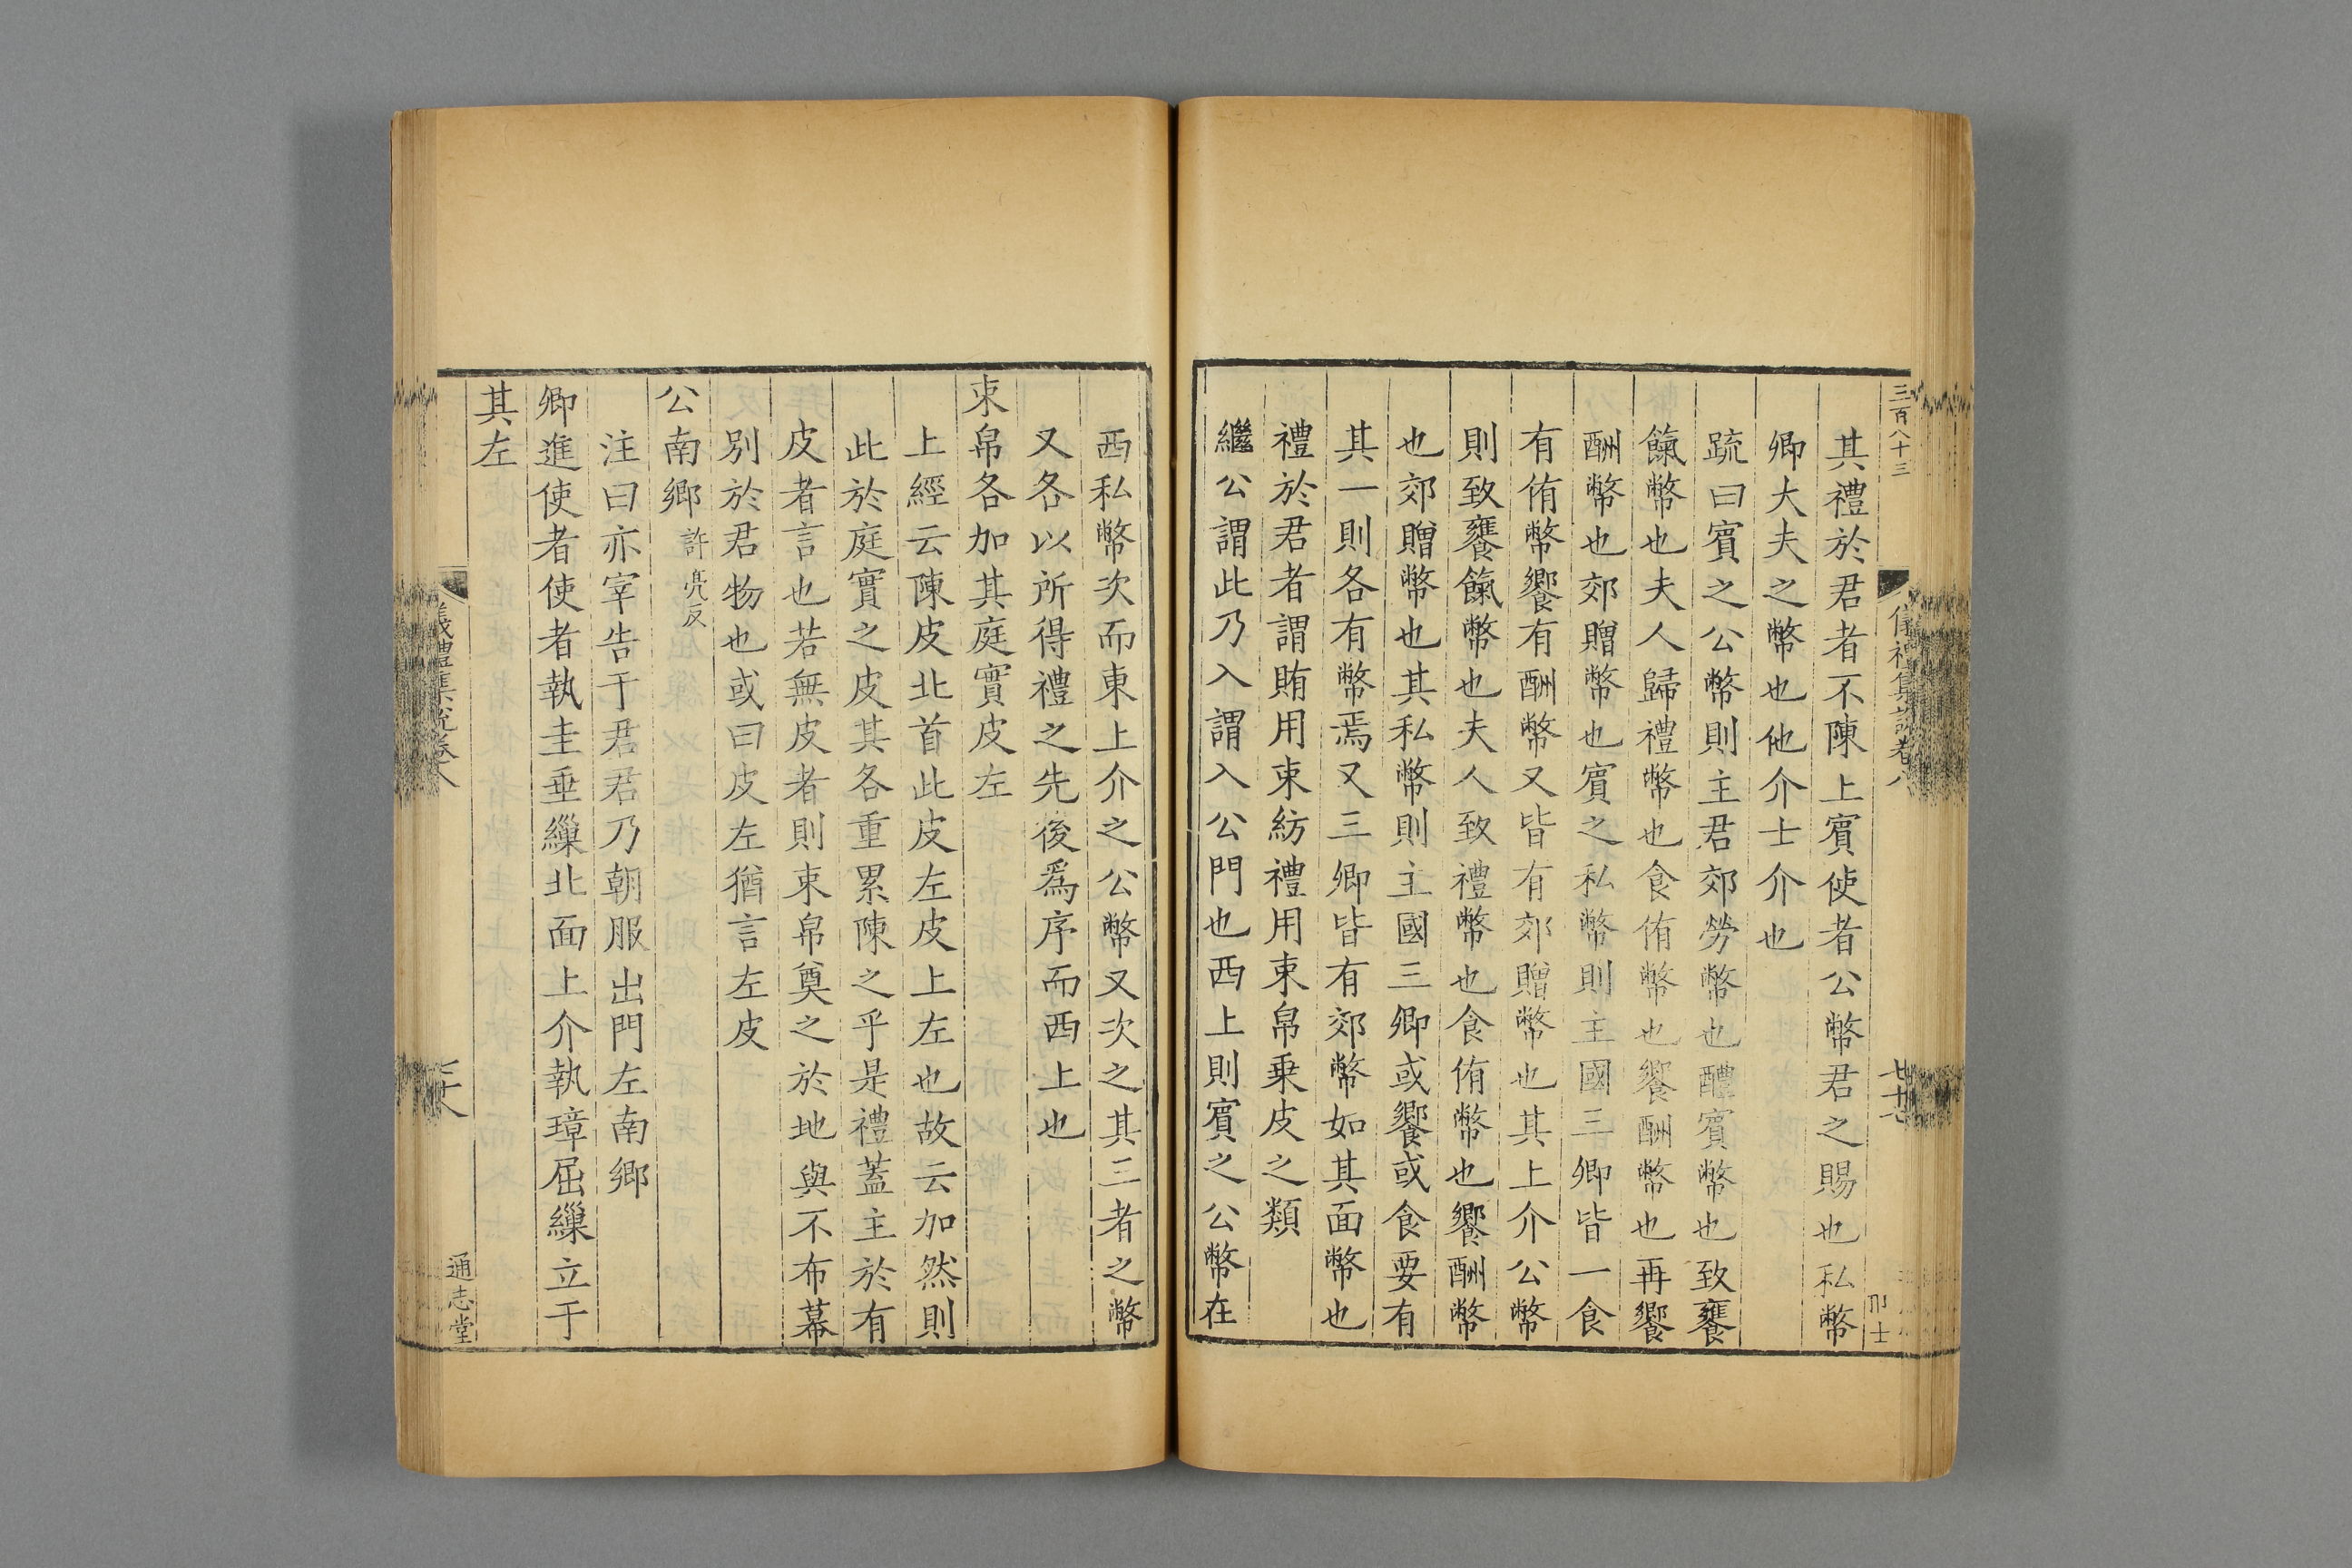 三百八十三
儀禮集說卷八
其禮於君者不陳上賓使者公幣君之賜也私幣
卿大夫之幣也他介士介也
疏曰賓之公幣則主君郊勞幣也醴賓幣也致饔
餼幣也夫人歸禮幣也食侑幣也饗酬幣也再饗
酬幣也郊贈幣也賓之私幣則主國三卿皆一食
有侑幣饗有酬幣又皆有郊贈幣也其上介公幣
則致饔餼幣也夫人致禮幣也食侑幣也饗酬幣
也郊贈幣也其私幣則主國三卿或饗或食要有
其一則各有幣焉又三卿皆有郊幣如其面幣也
禮於君者謂賄用束紡禮用束帛乗皮之類
繼公謂此乃入謂入公門也西上則賓之公幣在
西私幣次而東上介之公幣又次之其三者之幣
又各以所得禮之先後爲序而西上也
束帛各加其庭實皮左
上經云陳皮北首此皮左皮上左也故云加然則
此於庭實之皮其各重累陳之乎是禮蓋主於有
皮者言也若無皮者則束帛奠之於地與不布幕
別於君物也或曰皮左猶言左皮
公南鄉許亮反
注曰亦宰告于君君乃朝服出門左南鄉
卿進使者使者執圭垂繅北面上介執璋屈繅立于
其左
儀禮集說卷八
三十八
通志堂